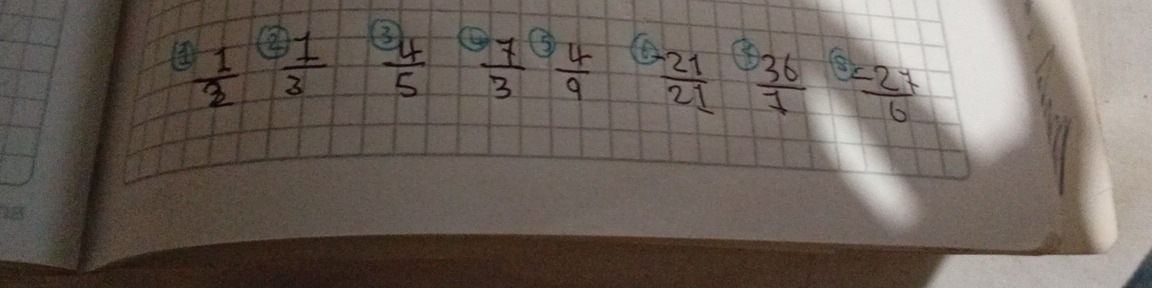 ① 1/2 ② 1/3 ③ 4/5 ④ 7/3 ⑤ 4/9 ⑥ -21/21 ⑦ 36/7 ⑧ -27/6